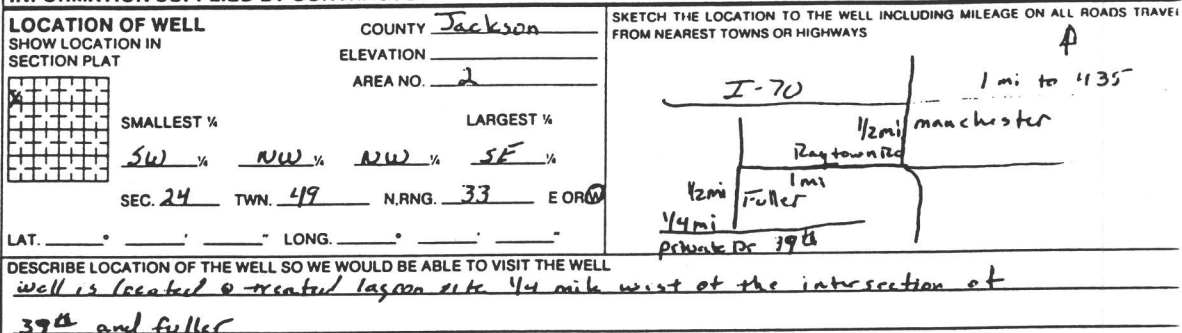 LOCATION OF WELL
SHOW LOCATION IN
SECTION PLAT
COUNTY Jackson
ELEVATION
AREA NO. 2
SMALLEST ¼ LARGEST ¼
SW ¼ NW ¼ NW ¼ SE ¼
SEC. 24 TWN. 49 N,RNG. 33 E OR W
LAT. ° ' " LONG. ° ' "
SKETCH THE LOCATION TO THE WELL INCLUDING MILEAGE ON ALL ROADS TRAVEL
FROM NEAREST TOWNS OR HIGHWAYS
I-70
1 mi to 435
1/2 mi manchester
Raytown Rd
1 mi
1/2 mi Fuller
1/4 mi
private Dr 39th
DESCRIBE LOCATION OF THE WELL SO WE WOULD BE ABLE TO VISIT THE WELL
well is located @ treated lagoon site 1/4 mile west of the intersection of
39th and fuller